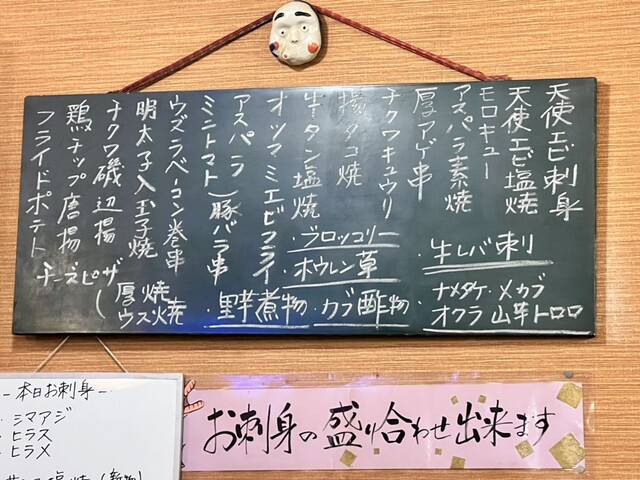 天使エビ刺身
天使エビ塩焼
モロキュー
アスパラ素焼
厚アゲ串
チクワキュウリ
揚タコ焼
牛タン塩焼
オツマミエビフライ
アスパラ
ミニトマト)豚バラ串
ウズラベーコン巻串
明太子入玉子焼
チクワ磯辺揚
鶏チップ唐揚
フライドポテト
チーズピザ
厚焼
ウス焼
・ブロッコリー
・ホウレン草
・里芋煮物
・カブ酢物
・生レバ刺り
ナメタケ・メカブ
オクラ 山芋トロロ
-本日お刺身-
・シマアジ
・ヒラス
・ヒラメ
お刺身の盛り合わせ出来ます